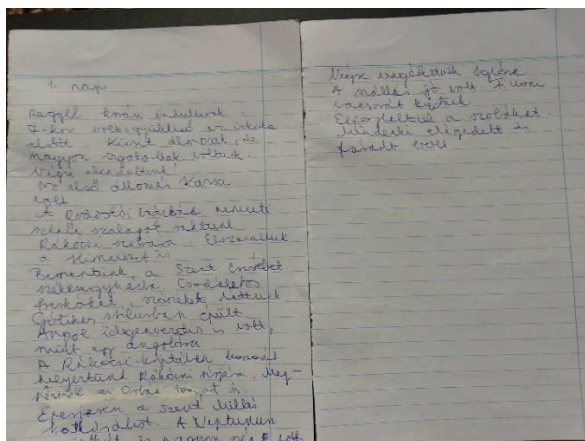 1. nap
Reggel korán indultunk.
7-kor volt a gyülekező az iskola
előtt. Kicsit álmosak, de
nagyon izgatottak voltunk.
Végre elindultunk,
Az első állomás Kassa
volt.
A Rodostói
szalagot
Rákóczi szobrára. Elszavaltuk
a Himnuszt is
Bementünk a Szent Erzsébet
székesegyházba. Csodálatos
freskókat, szobrokat láttunk
Gótikus stílusban épült
Angol idegenvezetés is volt,
mint egy angolóra
A Rákóczi-kriptában koszorút
helyeztünk Rákóczi sírjára. Meg-
néztük az Orbán tornyot is.
Eperjesen a Szent Miklós
A Neptunusz
is nagyon szép volt
Végre megérkeztünk Iglóra
A szállás jó volt. Finom
vacsorát kaptunk
Elfoglaltuk a szobákat.
Mindenki elégedett és
fáradt volt